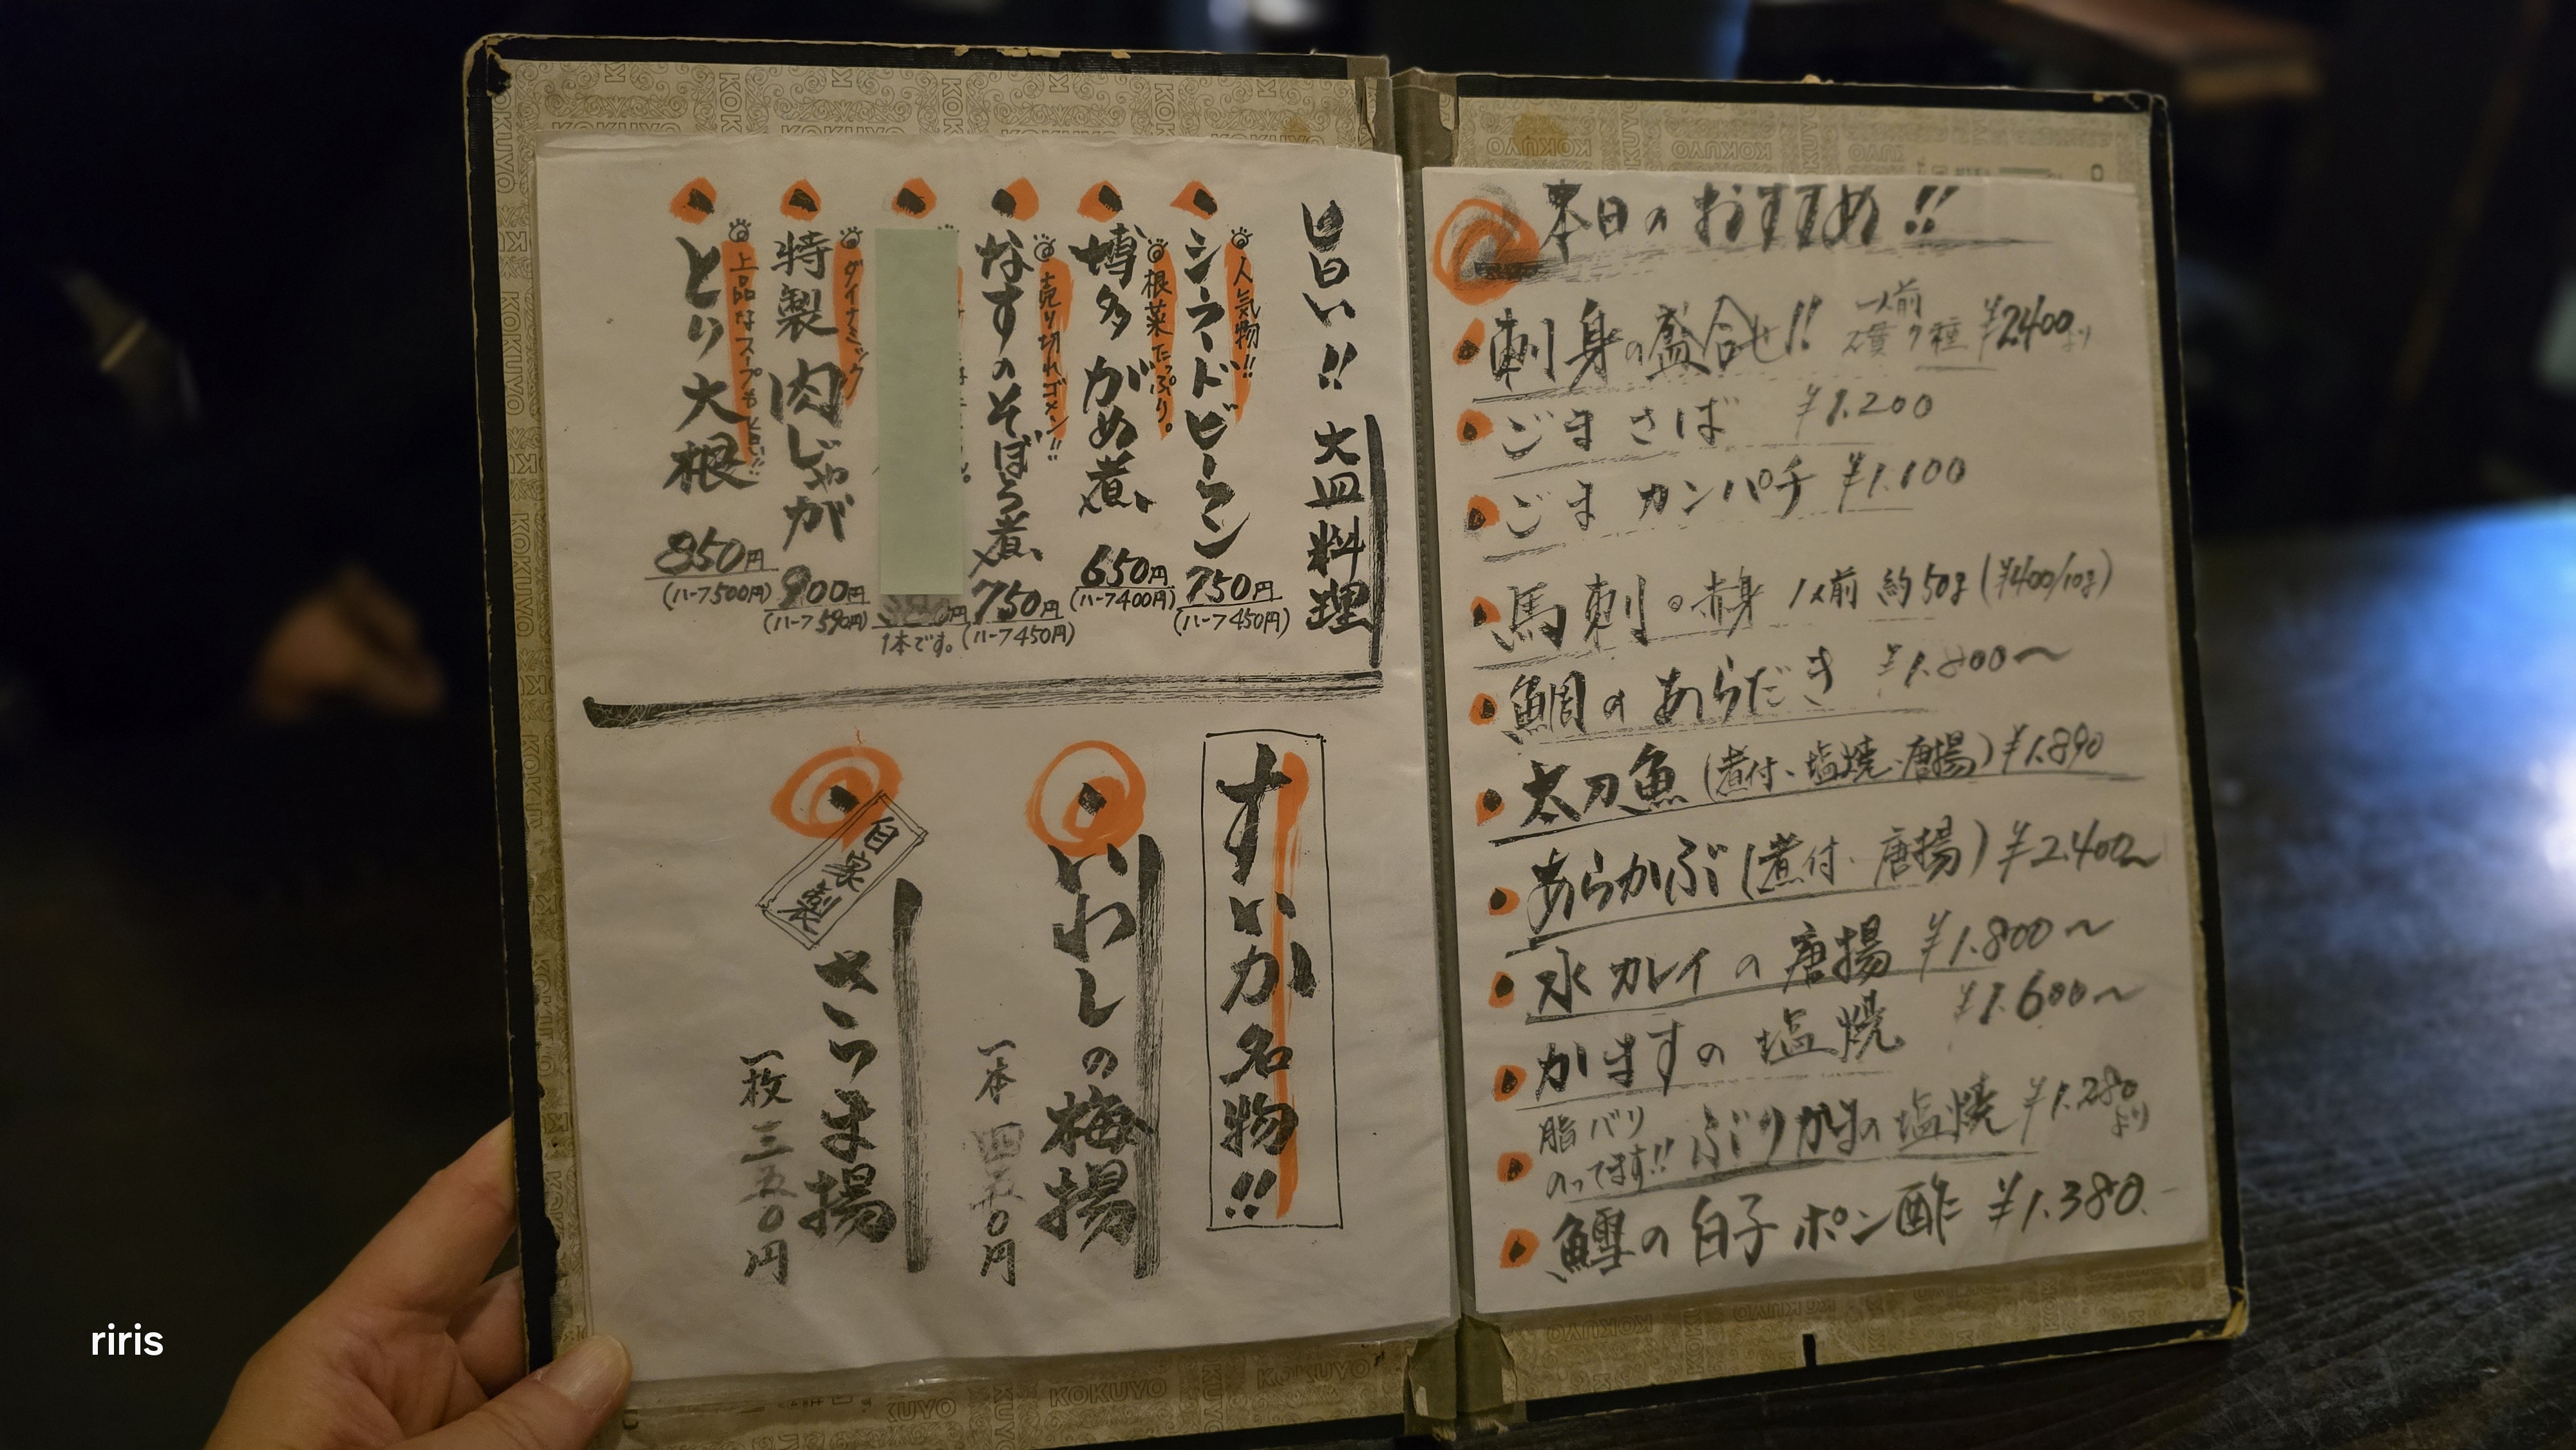 旨い!! 大皿料理
人気物!!
シラードビーフン
750円
(ハーフ450円)
根菜たっぷり。
博多がめ煮
650円
(ハーフ400円)
売り切れゴメン!!
なすのそぼろ煮
750円
(ハーフ450円)
1本です。
ダイナミック
特製肉じゃが
900円
(ハーフ590円)
上品なスープも
とり大根
850円
(ハーフ500円)
すいか名物!!
いわしの梅揚
一本 四五〇円
自家製
さつま揚
一枚 三五〇円
本日のおすすめ!!
刺身の盛合せ!! 一人前 7種 ¥2400より
ごまさば ¥1.200
ごまカンパチ ¥1.100
馬刺 赤身 1人前 約50g (¥400/10g)
鯛のあらだき ¥1.800〜
太刀魚 (煮付、塩焼、唐揚) ¥1.890
あらかぶ (煮付、唐揚) ¥2.400〜
水カレイの唐揚 ¥1.800〜
かますの塩焼 ¥1.600〜
脂バリのってます!! ぶりかまの塩焼 ¥1.280より
鱈の白子ポン酢 ¥1.380.
riris
KOKUYO